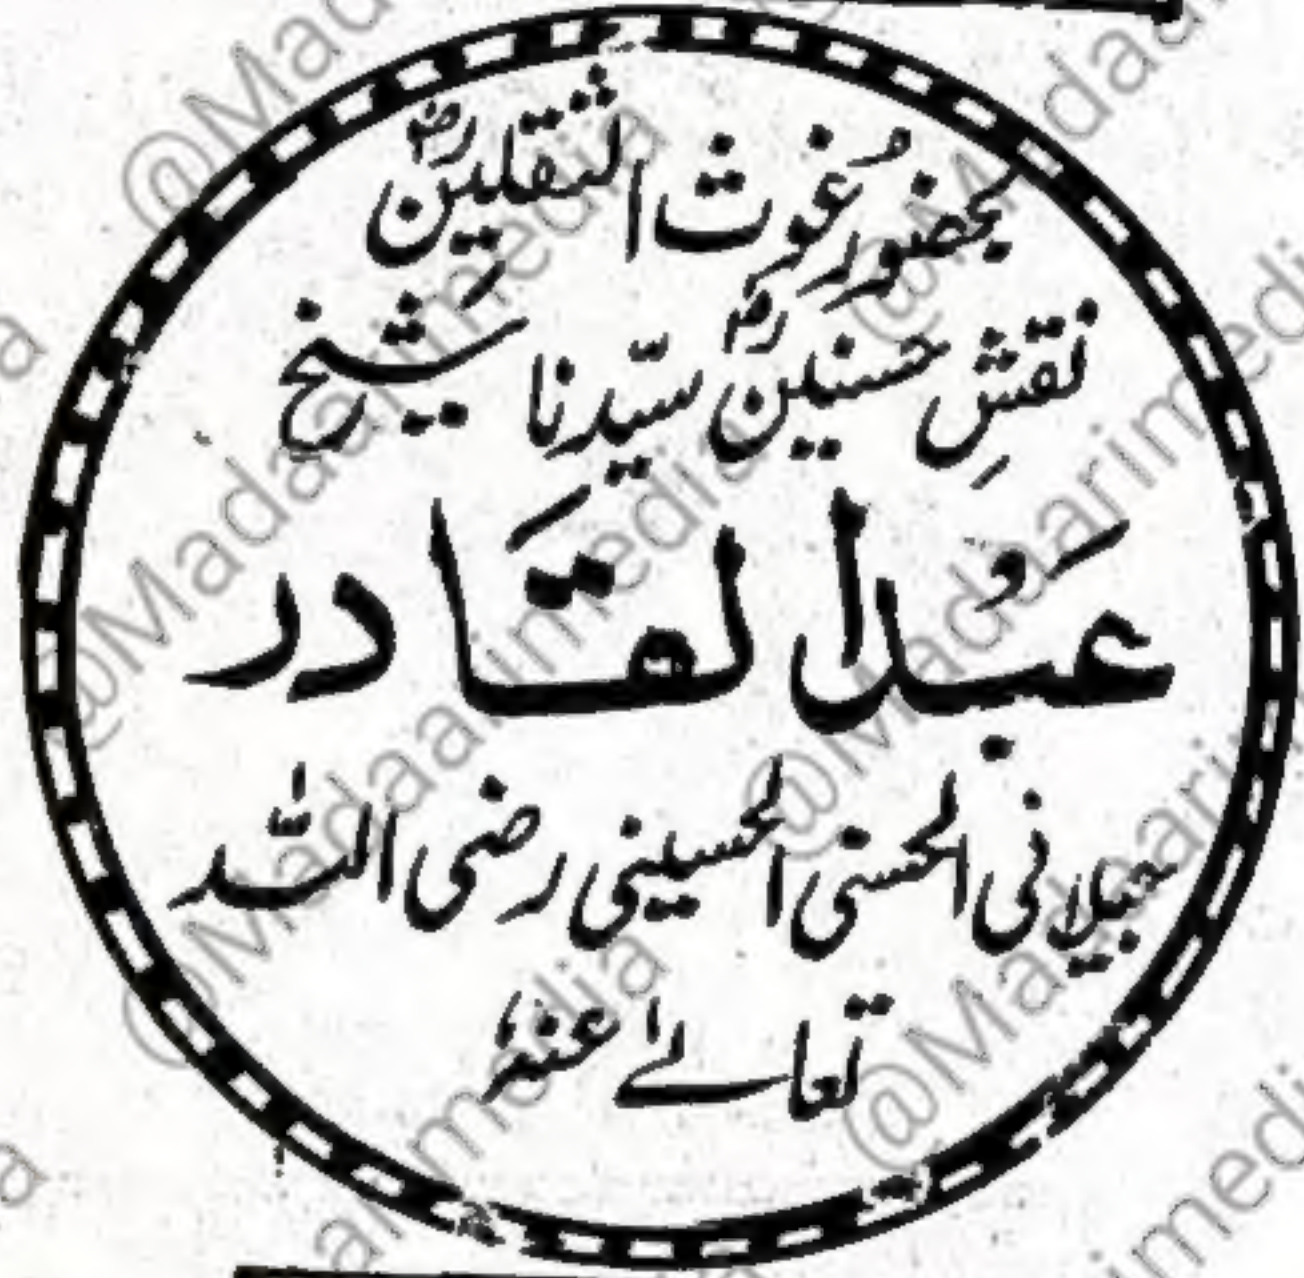 بحضور غوث الثقلینؓ
نقشِ حسنینؓ سیّدنا شیخ
عبدالقادر
جیلانی الحسنی الحسینی رضی اللہ
تعالےٰ عنہٗ
@Madaarimedia